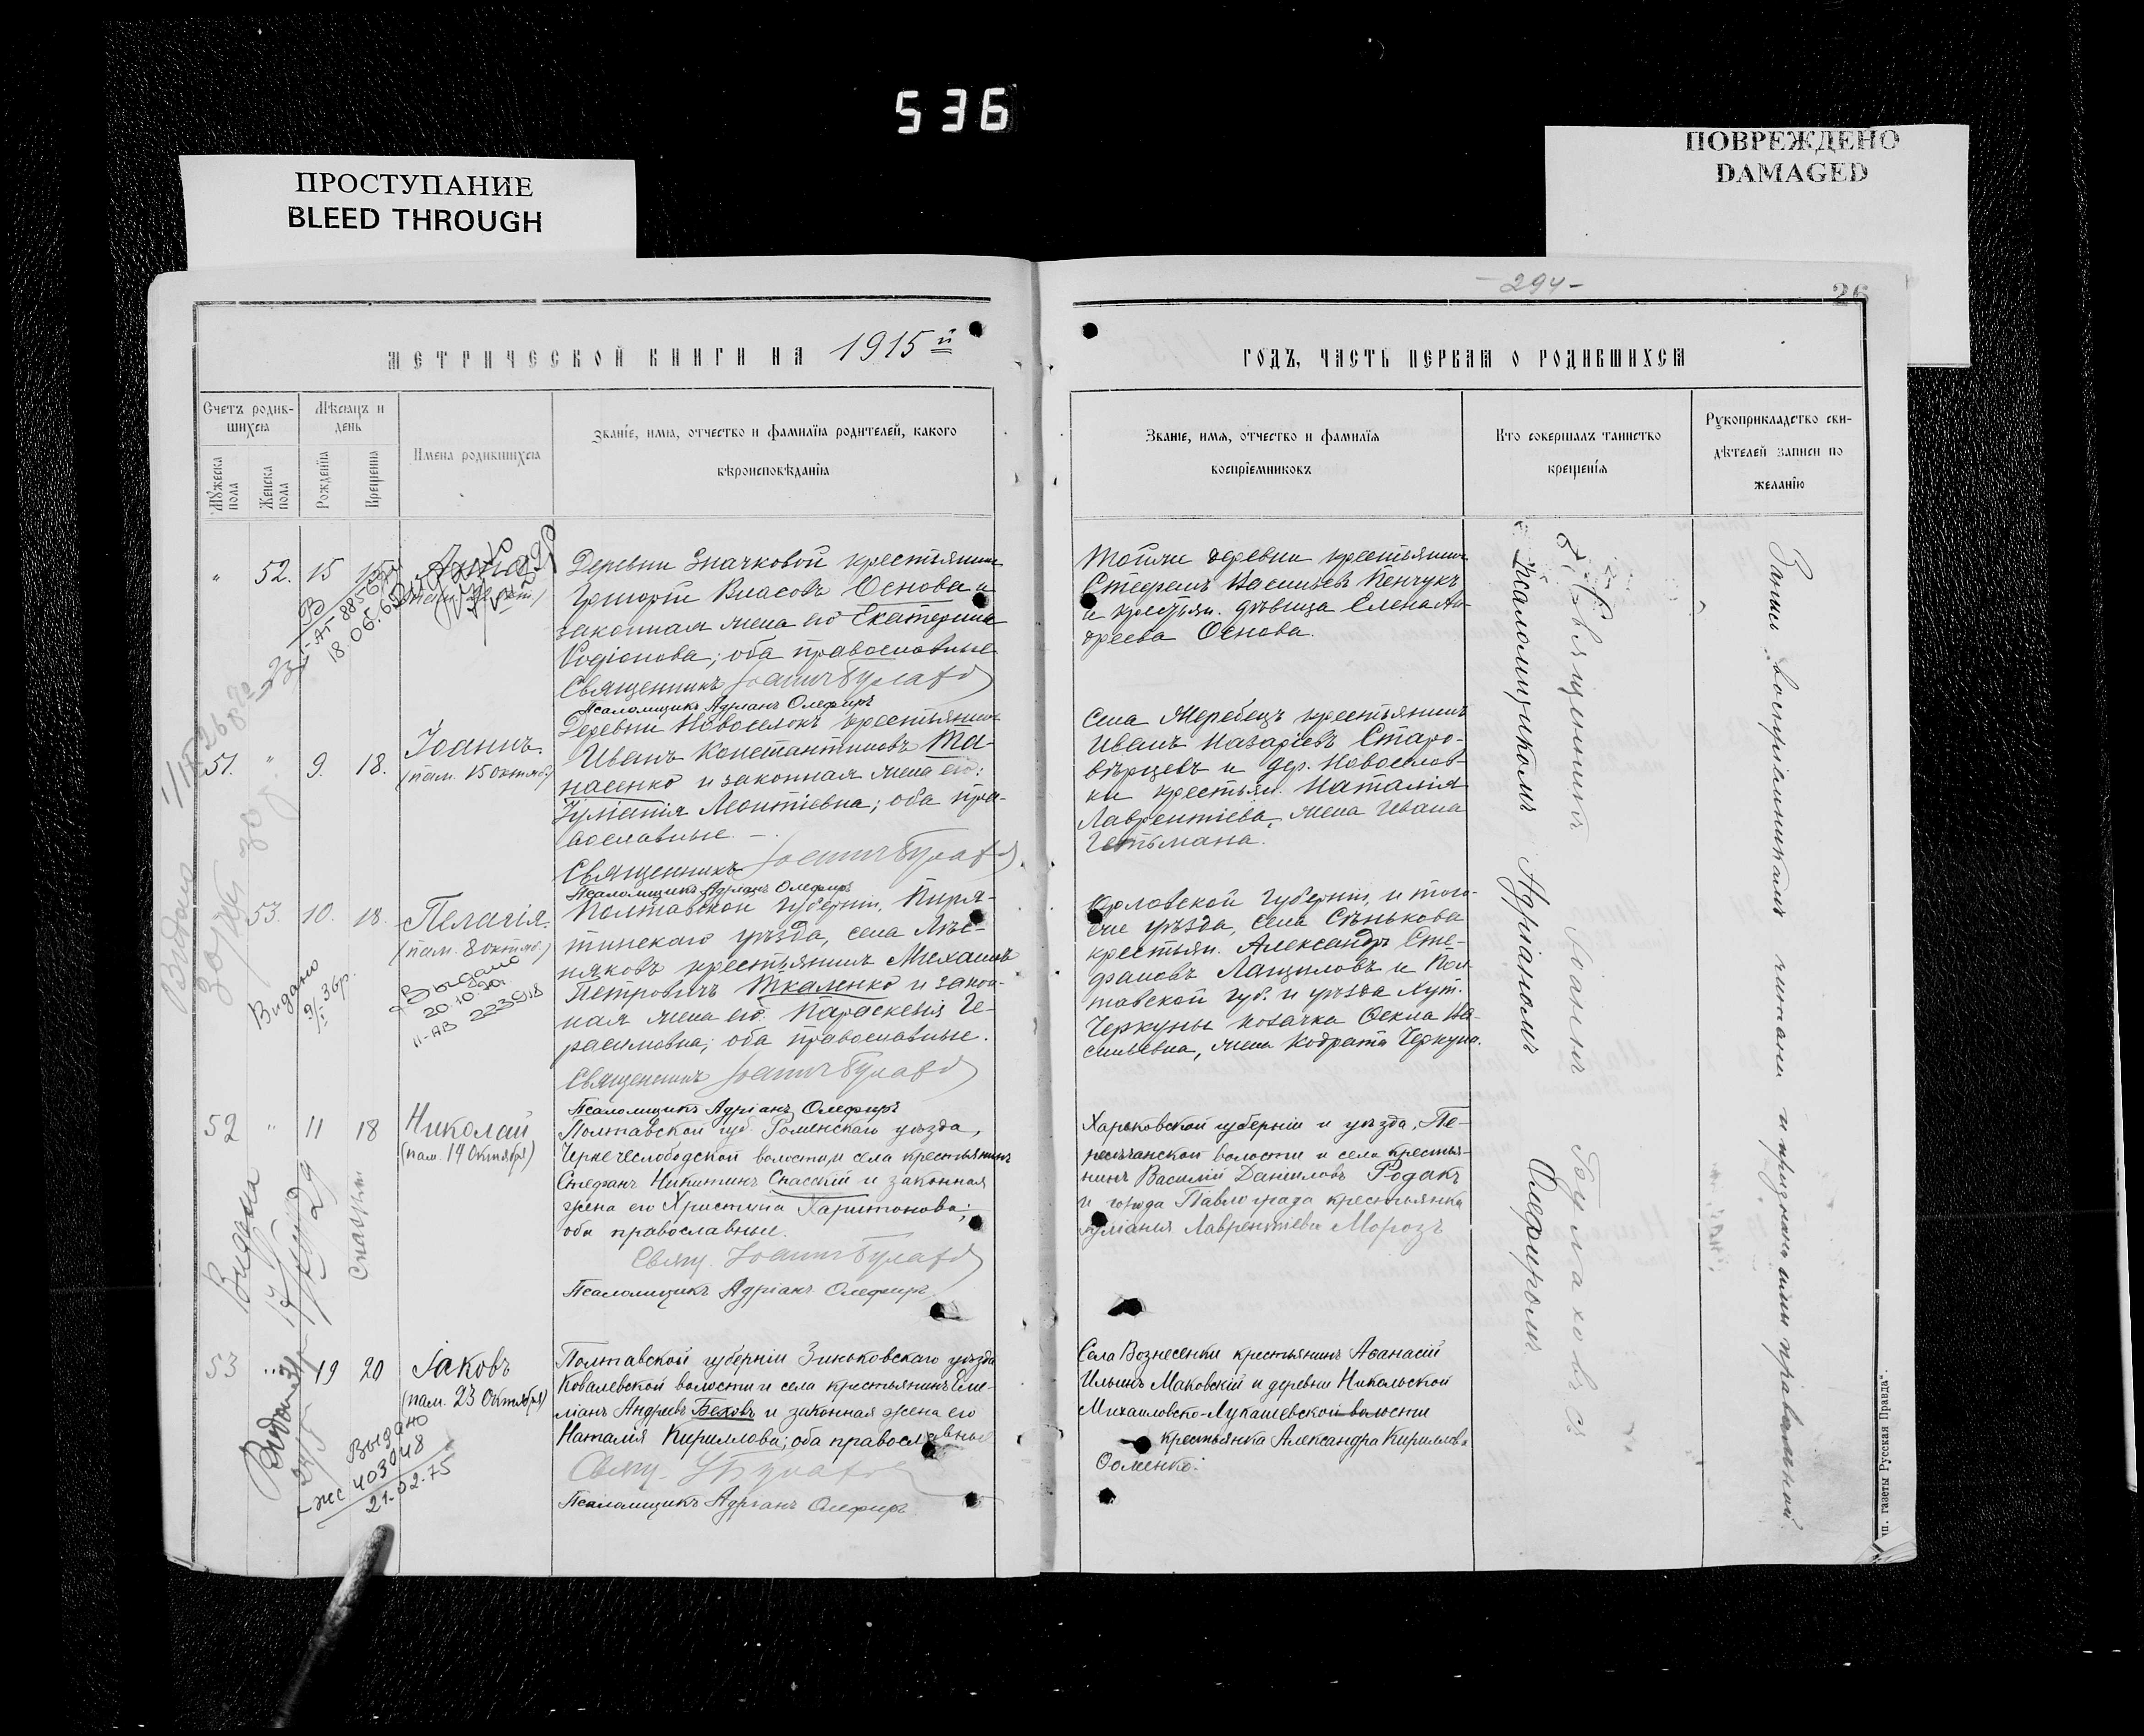 536
ПРОСТУПАНИЕ
BLEED THROUGH
ПОВРЕЖДЕНО
DAMAGED
-294-
26
МЕТРИЧЕСКОЙ КНИГИ НА 1915й
ГОДЪ, ЧАСТЬ ПЕРВАЯ О РОДИВШИХСЯ
Счетъ родив-
шихся
Мужеска пола
Женска пола
Мѣсяцъ и
день
Рожденія
Крещенія
Имена родившихся
Званіе, имя, отчество и фамилія родителей, какого
вѣроисповѣданія
Званіе, имя, отчество и фамилія
воспріемниковъ
Кто совершалъ таинство
крещенія
Рукоприкладство сви-
дѣтелей записи по
желанію
" 52. 15
18.06.
Деревни Значковой крестьянинъ
Григорій Власовъ Основа и
законная жена его Екатерина
Родіонова; оба православные
Священникъ
Псаломщикъ Адріанъ Олефиръ
Тойже деревни крестьянинъ
Стефанъ Васильевъ Пенчукъ
и крестьян. дѣвица Елена Ан-
дреева Основа.
51. " 9. 18. Іоаннъ.
(пам. 15 октяб.)
Деревни Новоселокъ крестьянинъ
Иванъ Константиновъ Та-
насенко и законная жена его:
Іуліанія Леонтіевна; оба пра-
вославные. —
Священникъ
Псаломщикъ Адріанъ Олефиръ
Села Жеребецъ крестьянинъ
Иванъ Назаріевъ Старо-
вѣрцевъ и дер. Новоселов-
ки крестьян. Наталія
Лаврентіева, жена Ивана
Гетьмана.
53. 10. 18. Пелагія.
(пам. 8 октяб.)
Видано
Выдано
20.10.
II-АВ 223918
Полтавской губерніи, Пиря-
тинскаго уѣзда, села Лѣс-
няковъ крестьянинъ Михаилъ
Петровичъ Ткаленко и закон-
ная жена его: Параскевія Ге-
расимовна; оба православные.
Священникъ
Псаломщикъ Адріанъ Олефиръ
Орловской губерніи, и того-
же уѣзда, села Сѣнькова
крестьян. Александръ Сте-
фановъ Лащиловъ и Пол-
тавской губ. и уѣзда хут.
Черкуны козачка Ѳекла Ва-
сильевна, жена Кодрата Черкуна.
52 " 11 18 Николай
(пам. 14 Октября)
Видана
Полтавской губ. Роменскаго уѣзда,
волости и села крестьянинъ
Стефанъ Никитинъ Спасскій и законная
жена его Христина Харитонова;
оба православные.
Свящ.
Псаломщикъ Адріанъ Олефиръ
Харьковской губерніи и уѣзда, Пе-
ресѣчанской волости и села крестья-
нинъ Василій Даніиловъ Родакъ
и города Павлограда крестьянка
Іуліанія Лаврентіева Морозъ
53 19 20 Іаковъ
(пам. 23 Октября)
Выдано
403048
21-02-75
Полтавской губерніи Зиньковскаго уѣзда
Ковалевской волости и села крестьянинъ Еме-
ліанъ Андреевъ Беховъ и законная жена его
Наталія Кириллова; оба православные
Свящ.
Псаломщикъ Адріанъ Олефиръ
Села Вознесенки крестьянинъ Аѳанасій
Ильинъ Маковскій и деревни Никольской
Михайловско-Лукашевской волости
крестьянка Александра Кириллова
Ѳоменко.
Священникъ Іоаннъ Булаховъ съ
Псаломщикомъ Адріаномъ Олефиромъ
Запись воспріемникамъ читана и признана ими правильной.
тип. газеты Русская Правда".